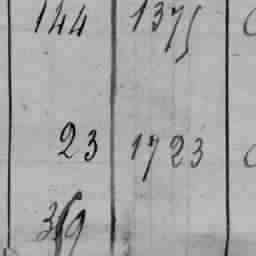 144 1375
23 1723